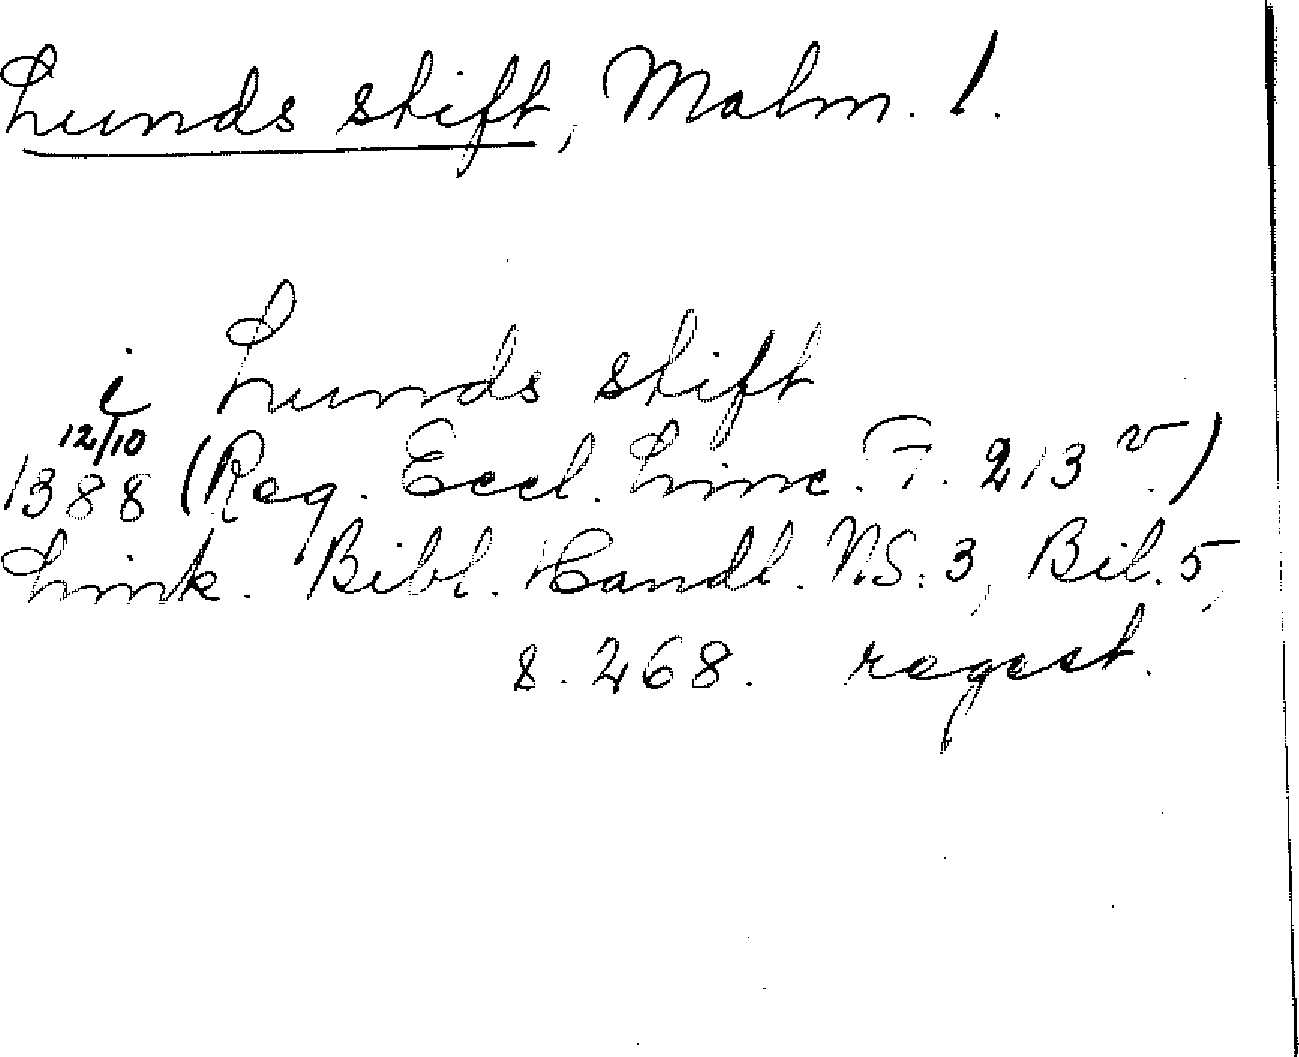 Lunds stift, Malm. l.
i Lunds stift
12/10
1388 (Reg. Eccl. Linc. F. 213 v.)
Link. Bibl. Handl. N.S. 3, Bil. 5,
s. 268. regest.